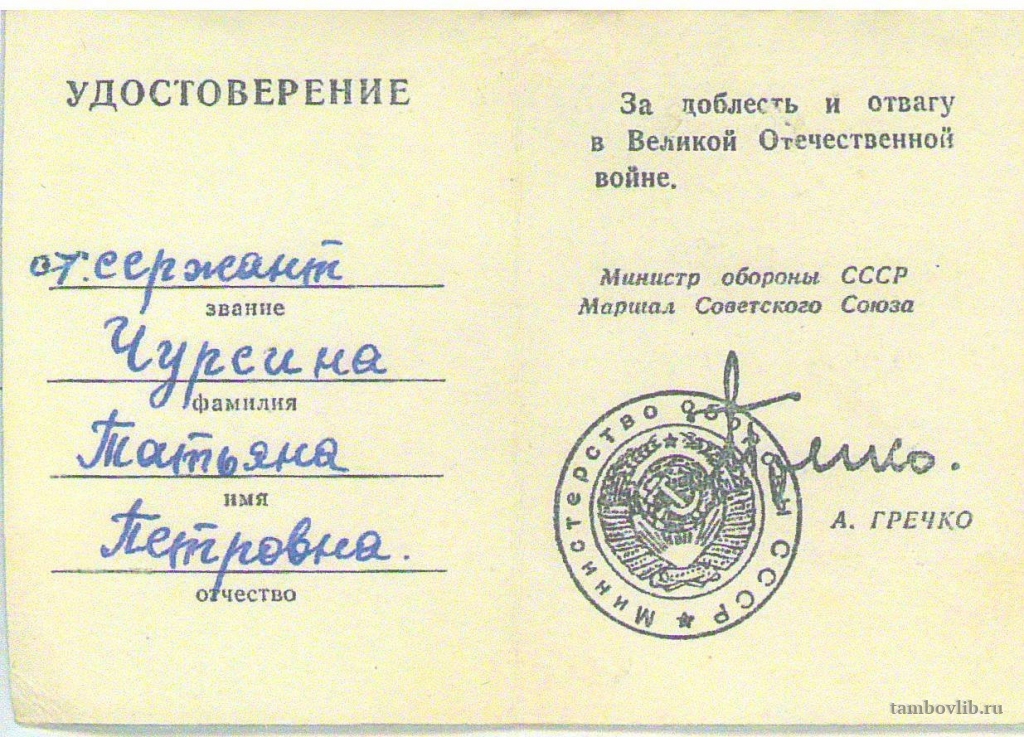 УДОСТОВЕРЕНИЕ
ст. сержант
звание
Чурсина
фамилия
Татьяна
имя
Петровна.
отчество
За доблесть и отвагу
в Великой Отечественной
войне.
Министр обороны СССР
Маршал Советского Союза
Министерство Обороны СССР
Гречко.
А. ГРЕЧКО
tambovlib.ru